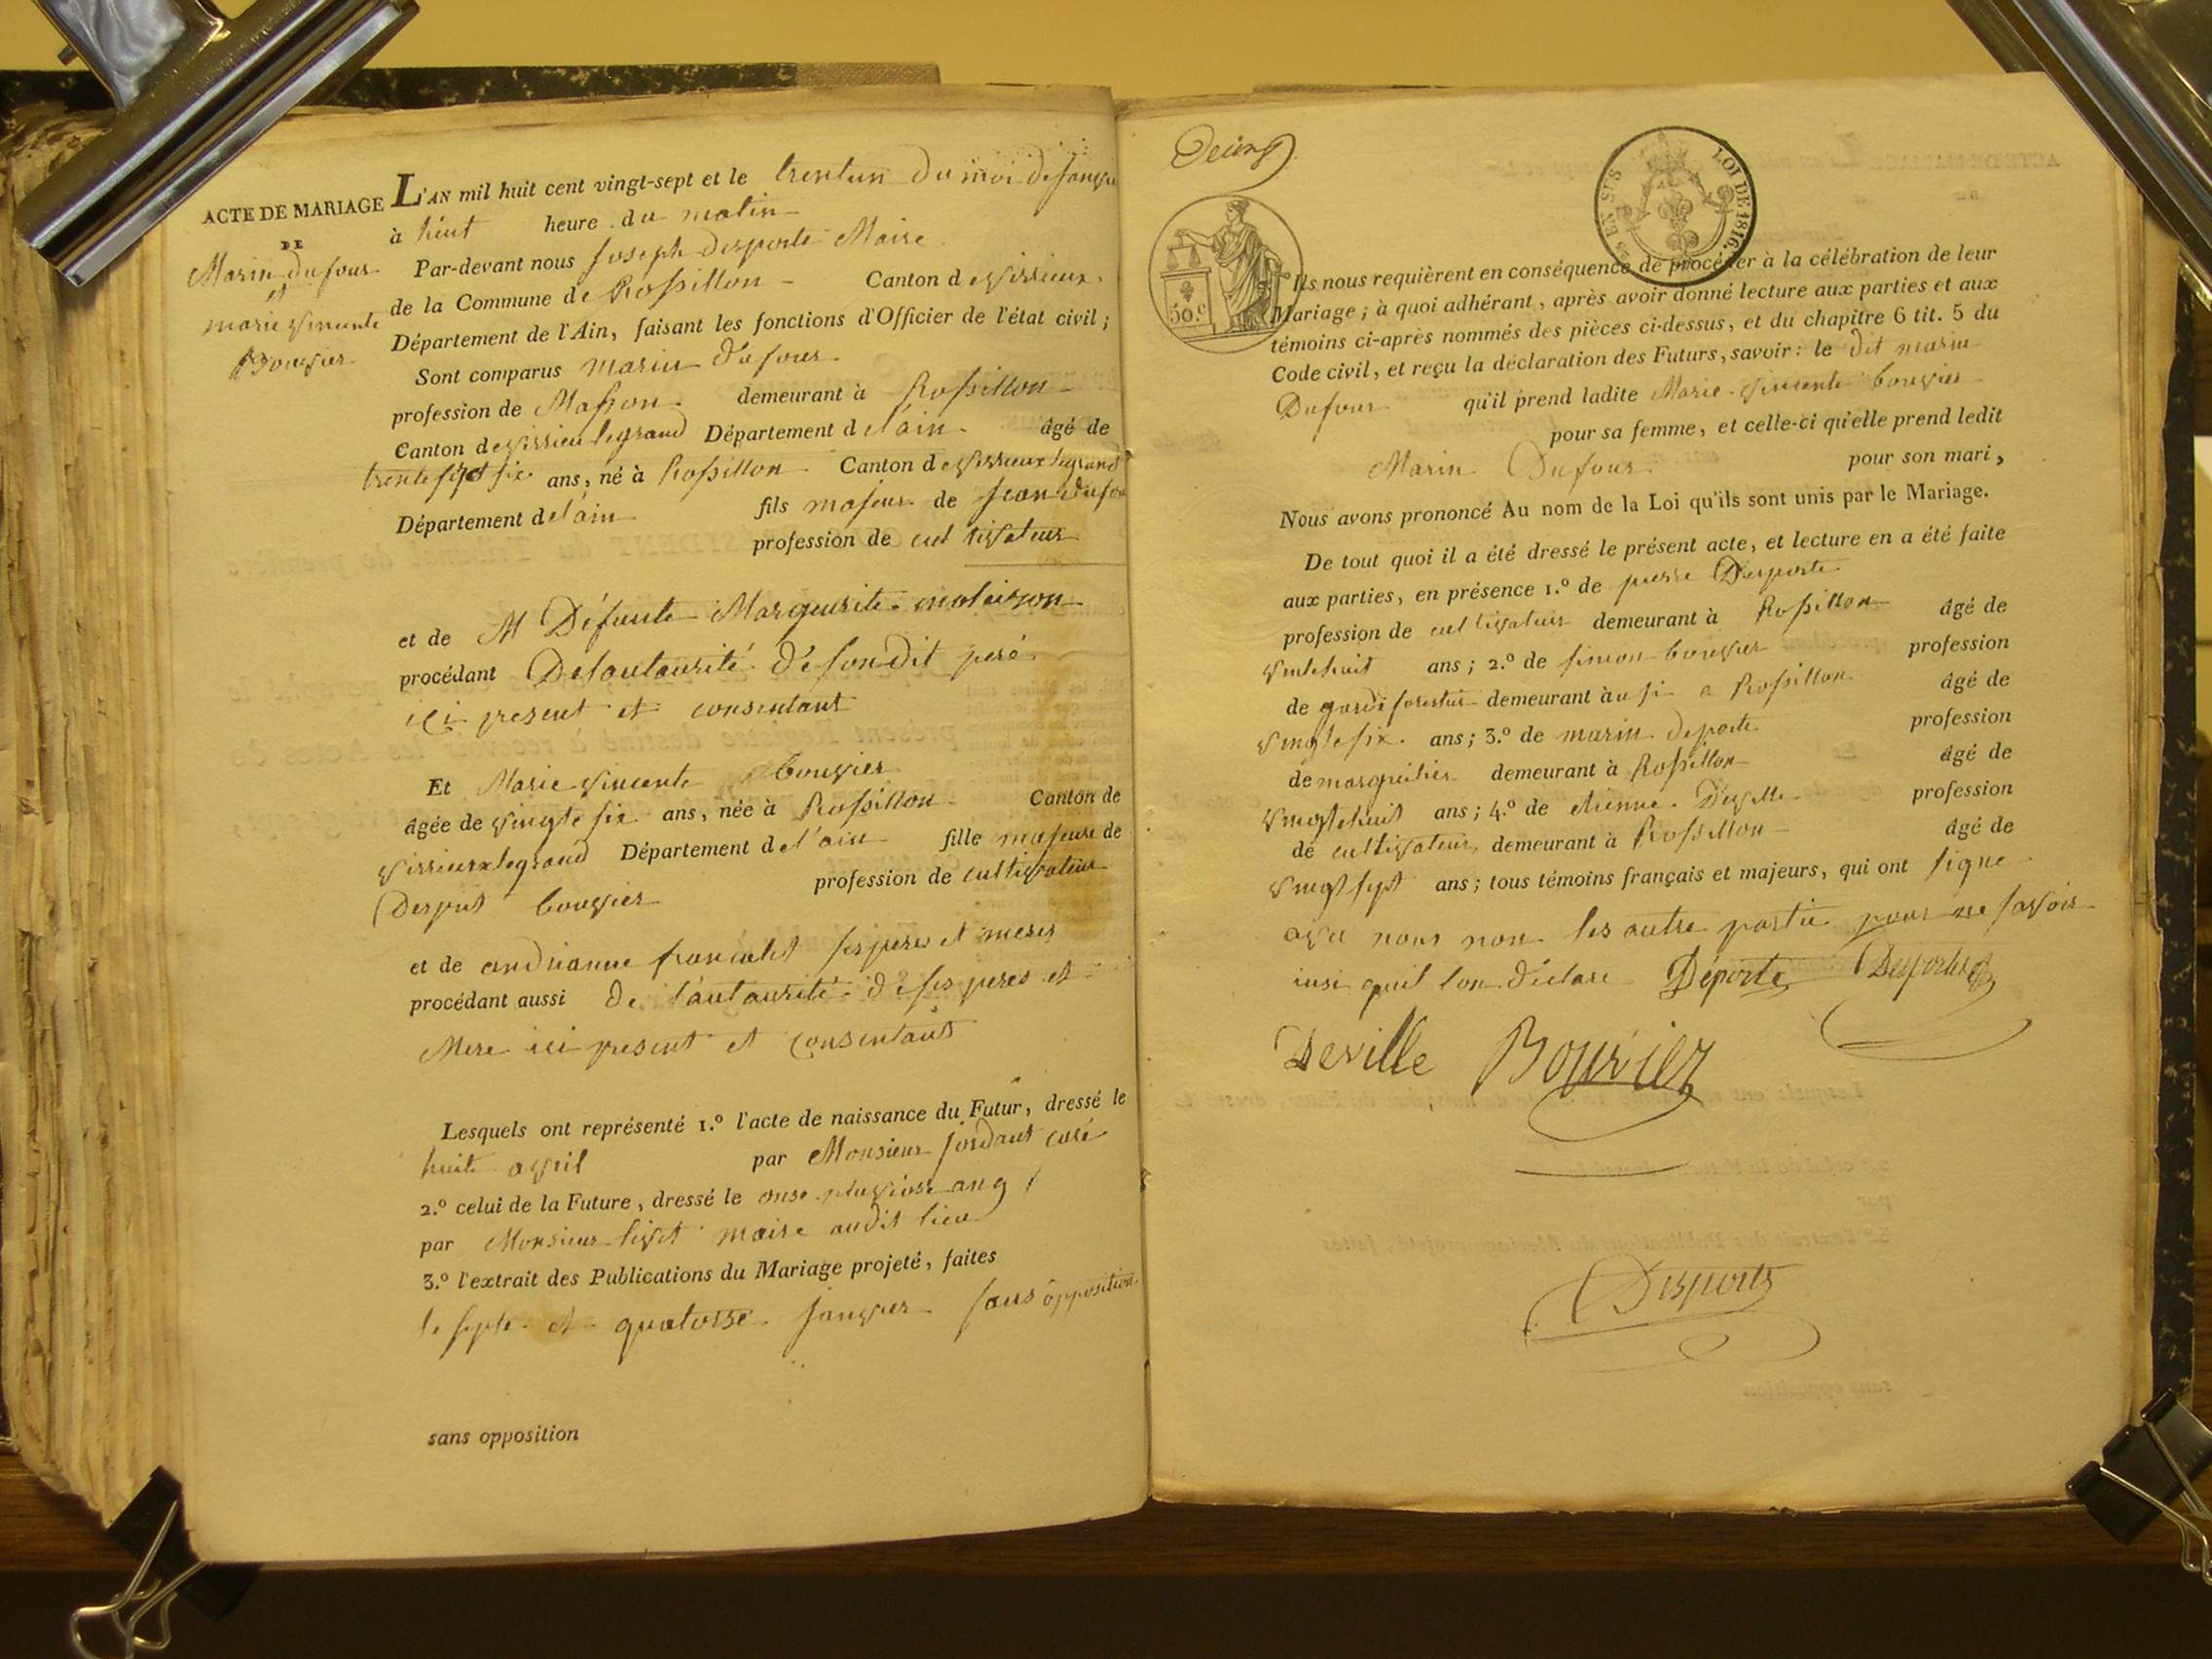 ACTE DE MARIAGE
DE
Marin dufour
et
marie vincente
Bouvier
L'AN mil huit cent vingt-sept et le trentun du moi de janvie
à huit heure du matin
Par-devant nous Joseph Desporte Maire
de la Commune de Rossillon Canton de virieux
Département de l'Ain, faisant les fonctions d'Officier de l'état civil;
Sont comparus marin dufour
profession de Masson demeurant à Rossillon
Canton de virieu legrand Département de l'ain âgé de
trente six ans, né à Rossillon Canton de virieux legrand
Département de l'ain fils majeur de jean dufour
profession de cultivateur
et de Défunte Marguerite
procédant De sautaurité de son dit peré
ici present et consentant
Et Marie vincente bouvier
âgée de vingte six ans, née à Rossillon Canton de
virieux legrand Département de l'ain fille majeure de
bouvier profession de cultivateur
et de andrianne francalet ses peres et meres
procédant aussi de l'autaurité de ses peres et
Mere ici present et consentant
Lesquels ont représenté 1.º l'acte de naissance du Futur, dressé le
huite avril par Monsieur jordant curé
2.º celui de la Future, dressé le onse pluviose an 9
par Monsieur livet maire audit lieu
3.º l'extrait des Publications du Mariage projeté, faites
le septe et quatorse janvier sans opposition
sans opposition
Deux
50.c
EN SUS LOI DE 1816.
Ils nous requièrent en conséquence de procéder à la célébration de leur
Mariage; à quoi adhérant, après avoir donné lecture aux parties et aux
témoins ci-après nommés des pièces ci-dessus, et du chapitre 6 tit. 5 du
Code civil, et reçu la déclaration des Futurs, savoir: le dit marin
Dufour qu'il prend ladite Marie vincente bouvier
pour sa femme, et celle-ci qu'elle prend ledit
Marin Dufour pour son mari,
Nous avons prononcé Au nom de la Loi qu'ils sont unis par le Mariage.
De tout quoi il a été dressé le présent acte, et lecture en a été faite
aux parties, en présence 1.º de pierre Desporte
profession de cultivateur demeurant à Rossillon âgé de
vintehuit ans; 2.º de simon bouvier profession
de garde forestier demeurant à ausi a Rossillon âgé de
vingte six ans; 3.º de marin deporte profession
de marguilier demeurant à Rossillon âgé de
vingtehuit ans; 4.º de etienne Deville profession
de cultivateur demeurant à Rossillon âgé de
vingt sept ans; tous témoins français et majeurs, qui ont signe
avec nous non les autre partie pour ne savoir
insi quil lon déclare Déporte Desportes
Deville Bouvier
Desporte